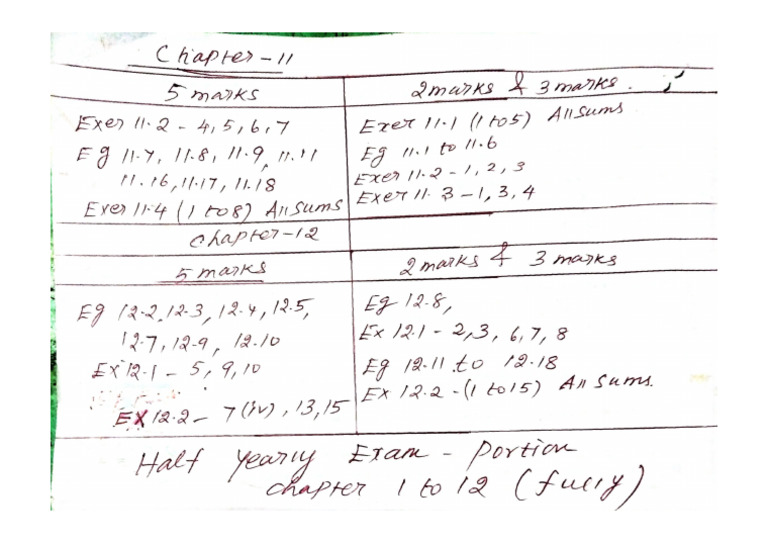 Chapter-11
5 marks
2marks & 3 marks.
Exer 11.2 - 4, 5, 6, 7
Eg 11.7, 11.8, 11.9, 11.11
11.16, 11.17, 11.18
Exer 11.4 (1 to 8) All Sums
Exer 11.1 (1 to 5) All sums
Eg 11.1 to 11.6
Exer 11.2 - 1, 2, 3
Exer 11.3 - 1, 3, 4
Chapter-12
5 marks
2 marks & 3 marks
Eg 12.2, 12.3, 12.4, 12.5,
12.7, 12.9, 12.10
Ex 12.1 - 5, 9, 10
Ex 12.2 - 7 (iv), 13, 15
Eg 12.8,
Ex 12.1 - 2, 3, 6, 7, 8
Eg 12.11 to 12.18
Ex 12.2 - (1 to 15) All Sums.
Half yearly Exam - portion
chapter 1 to 12 (fully)